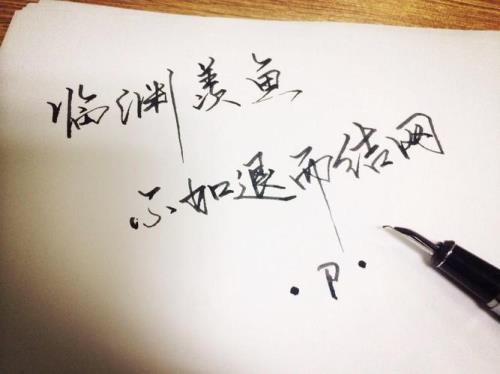 临渊羡鱼
不如退而结网
·P·